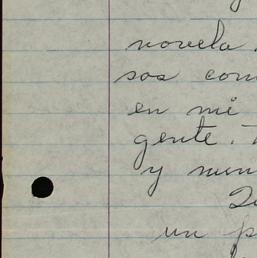 novela.
sos com
en mi
gente.
y nun
un p